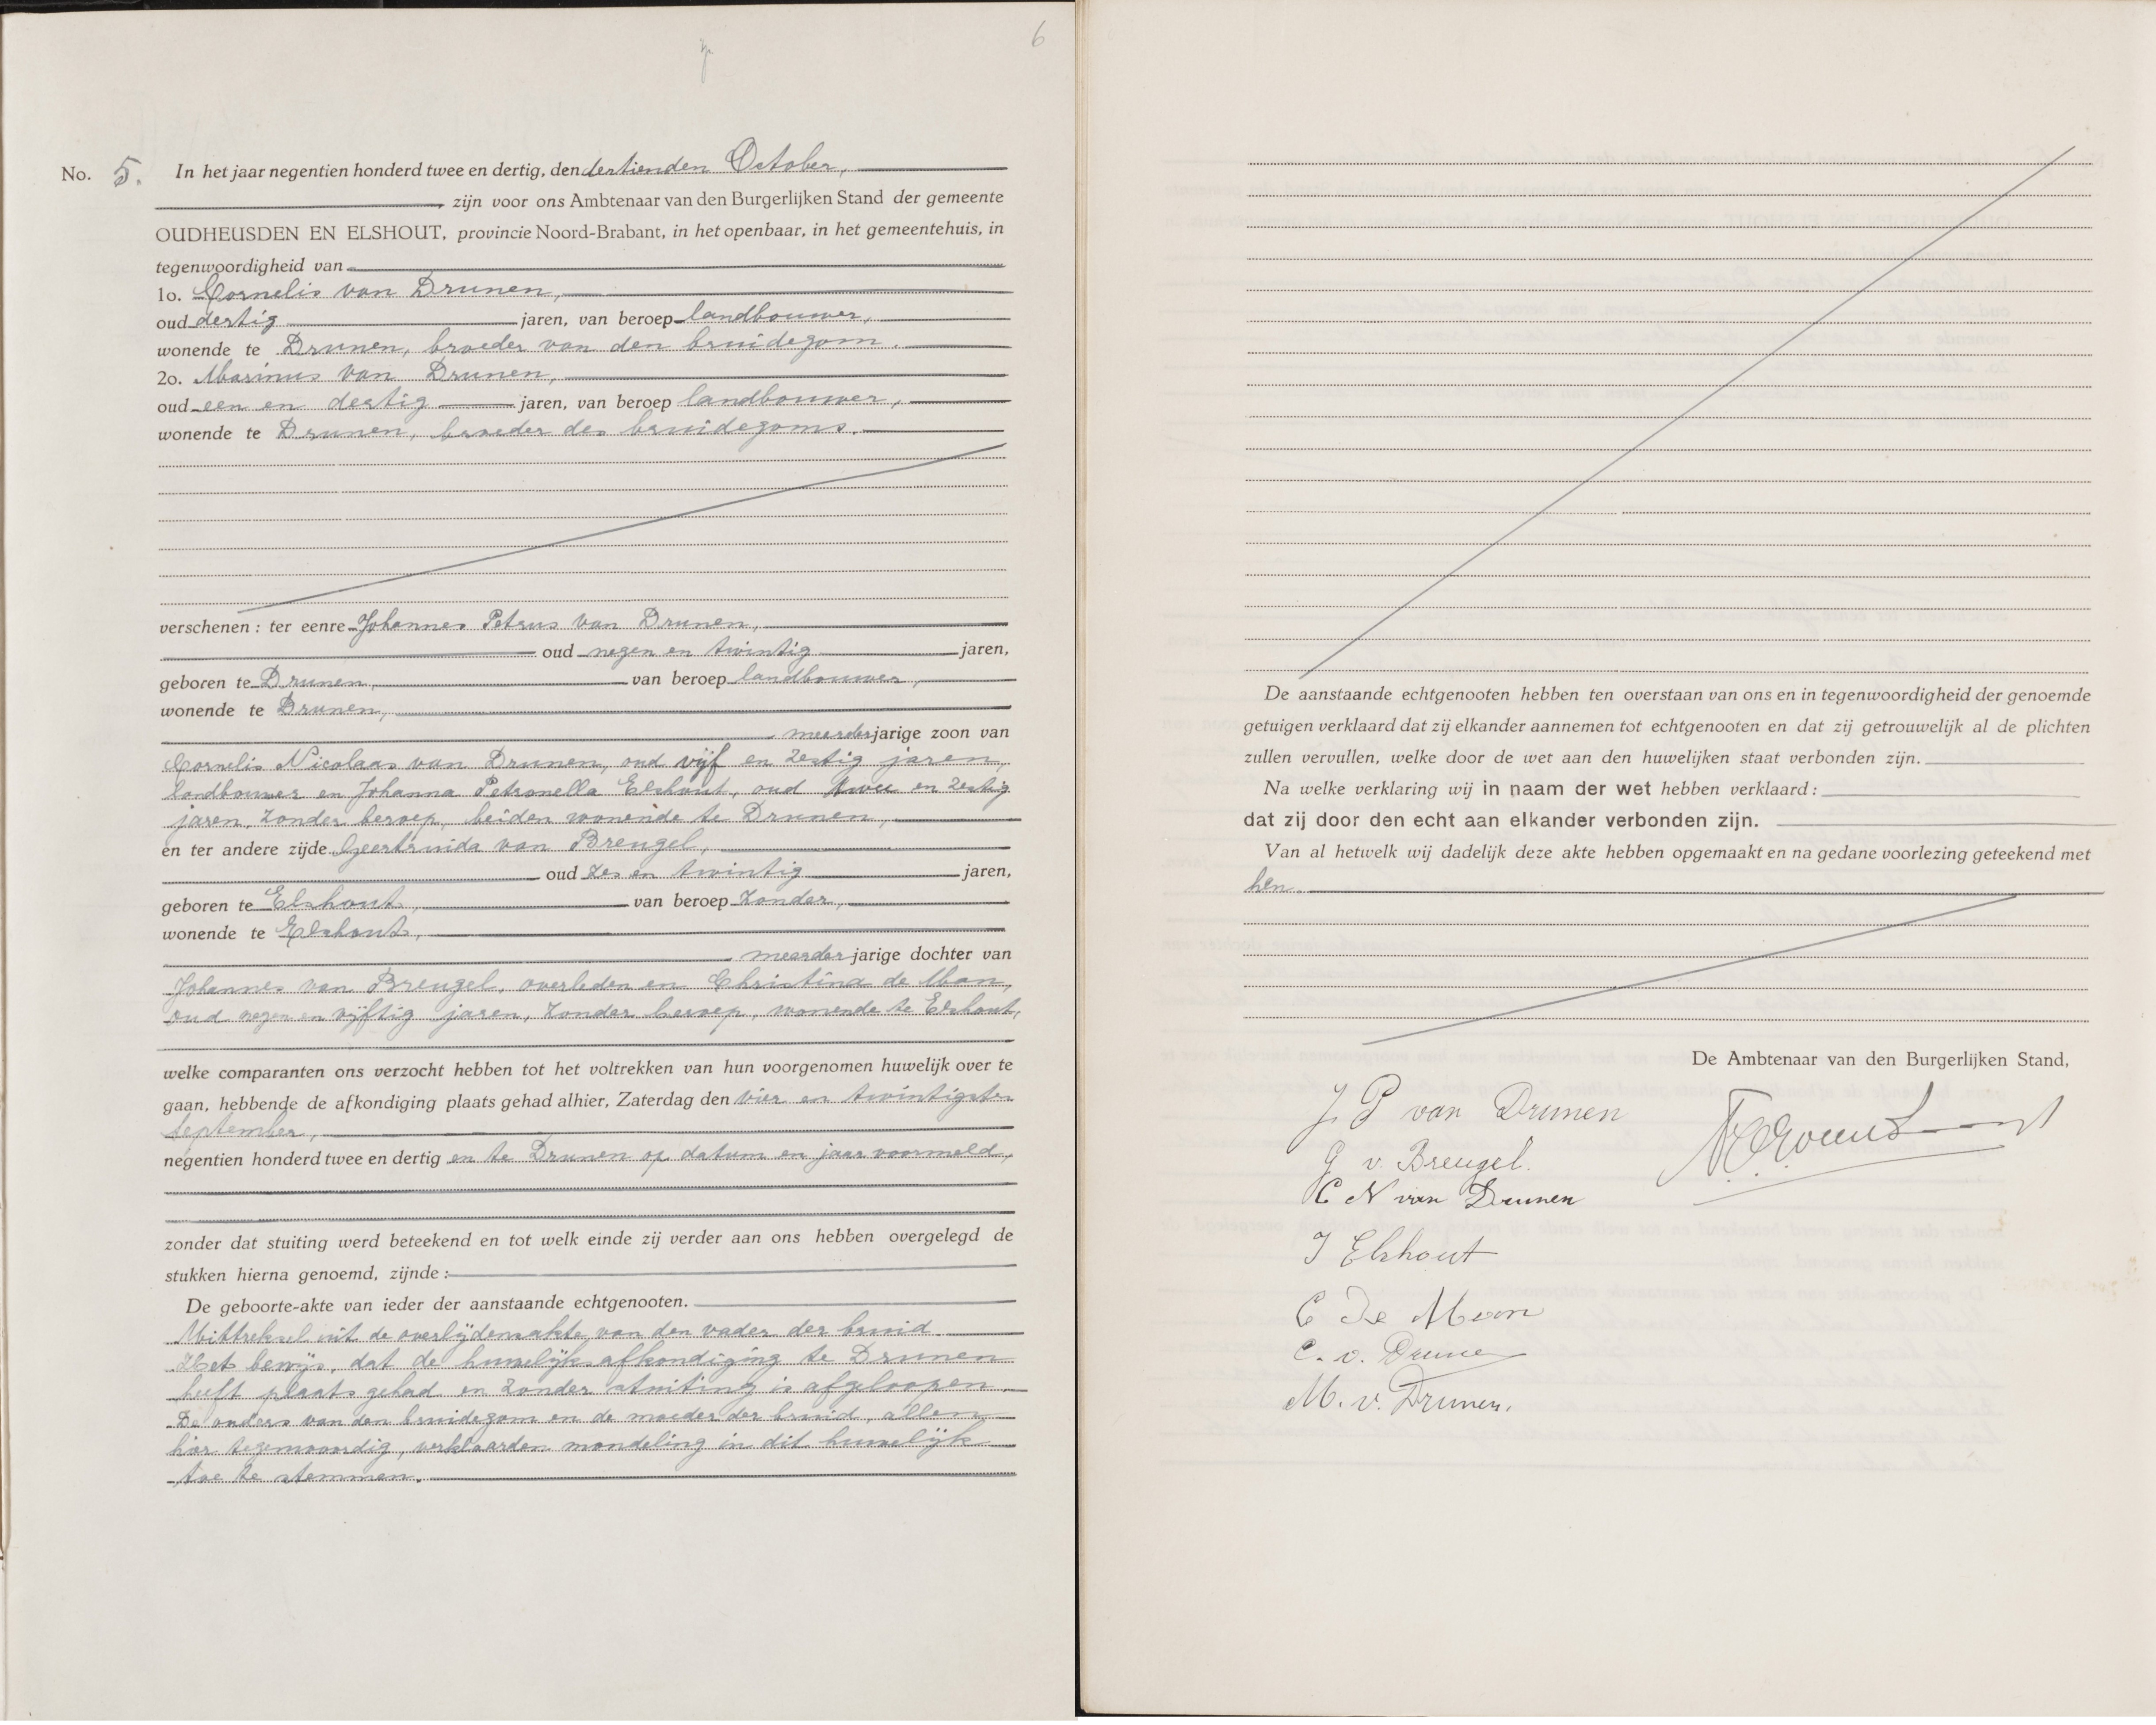 6
No. 5. In het jaar negentien honderd twee en dertig, den dertienden October,
zijn voor ons Ambtenaar van den Burgerlijken Stand der gemeente
OUDHEUSDEN EN ELSHOUT, provincie Noord-Brabant, in het openbaar, in het gemeentehuis, in
tegenwoordigheid van
1o. Cornelis van Drunen,
oud dertig jaren, van beroep landbouwer,
wonende te Drunen, broeder van den bruidegom.
2o. Marinus van Drunen,
oud een en dertig jaren, van beroep landbouwer,
wonende te Drunen, broeder des bruidegoms.
verschenen: ter eenre Johannes Petrus van Drunen,
oud negen en twintig jaren,
geboren te Drunen, van beroep landbouwer,
wonende te Drunen,
meerderjarige zoon van
Cornelis Nicolaas van Drunen, oud vijf en zestig jaren,
landbouwer en Johanna Petronella Elshout, oud twee en zestig
jaren, zonder beroep, beiden wonende te Drunen,
en ter andere zijde Geertruida van Breugel,
oud zes en twintig jaren,
geboren te Elshout, van beroep zonder,
wonende te Elshout,
meerderjarige dochter van
Johannes van Breugel, overleden en Christina de Mon,
oud negen en vijftig jaren, zonder beroep, wonende te Elshout,
welke comparanten ons verzocht hebben tot het voltrekken van hun voorgenomen huwelijk over te
gaan, hebbende de afkondiging plaats gehad alhier, Zaterdag den vier en twintigsten
September,
negentien honderd twee en dertig en te Drunen op datum en jaar voormeld,
zonder dat stuiting werd beteekend en tot welk einde zij verder aan ons hebben overgelegd de
stukken hierna genoemd, zijnde:
De geboorte-akte van ieder der aanstaande echtgenooten.
Uittreksel uit de overlijdensakte van den vader der bruid
Het bewijs, dat de huwelijksafkondiging te Drunen
heeft plaats gehad en zonder stuiting is afgeloopen.
De ouders van den bruidegom en de moeder der bruid, allen
hier tegenwoordig, verklaarden mondeling in dit huwelijk
toe te stemmen.
De aanstaande echtgenooten hebben ten overstaan van ons en in tegenwoordigheid der genoemde
getuigen verklaard dat zij elkander aannemen tot echtgenooten en dat zij getrouwelijk al de plichten
zullen vervullen, welke door de wet aan den huwelijken staat verbonden zijn.
Na welke verklaring wij in naam der wet hebben verklaard:
dat zij door den echt aan elkander verbonden zijn.
Van al hetwelk wij dadelijk deze akte hebben opgemaakt en na gedane voorlezing geteekend met
hen.
De Ambtenaar van den Burgerlijken Stand,
J P van Drunen
G v. Breugel.
C N van Drunen
J Elshout
C De Mon
C. v. Drunen
M. v. Drunen.